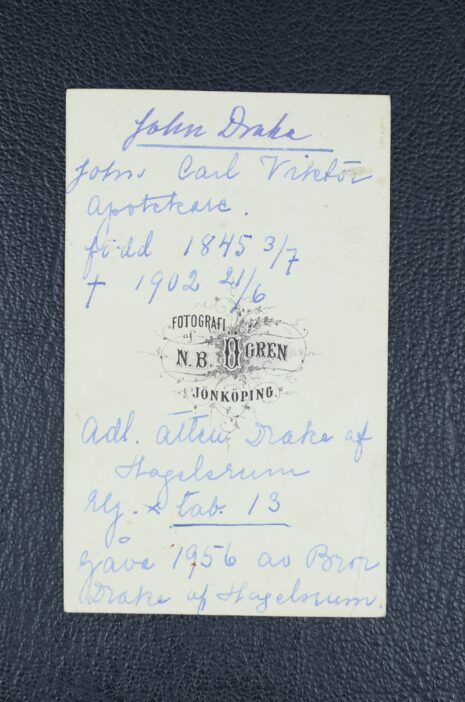 John Drake
John Carl Viktor
Apotekare.
född 1845 3/7
† 1902 21/6
FOTOGRAFI
af
N. B. ÖGREN
JÖNKÖPING.
Adl. ätten Drake af
Hagelsrum
tab. 13
gåva 1956 av Bror
Drake af Hagelsrum.